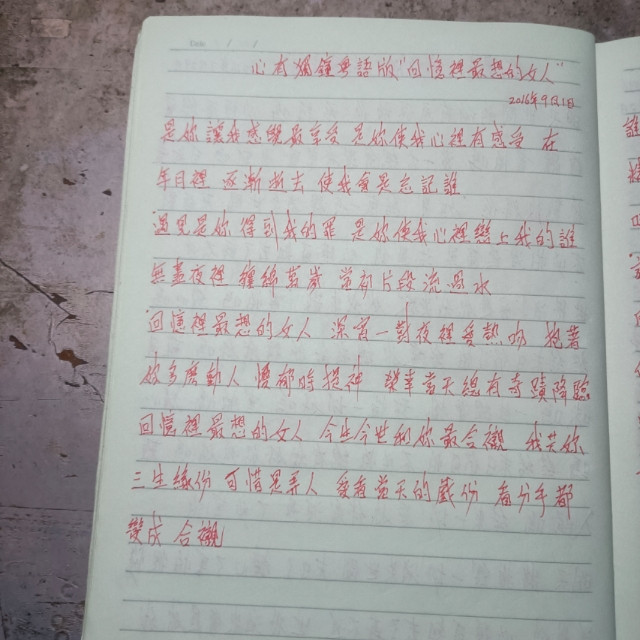 Date / /
心有獨鍾粵語版"回憶裡最想的女人"
2016年9月1日
是你讓我感覺最享受 是你使我心裡有感受 在
年日裡 逐漸逝去 使我看是忘記誰
遇見是你 得到我的是 是你使我心裡戀上我的誰
無盡夜裡 種種 當初片段流過水
回憶裡最想的女人 深宵一對夜裡受熱吻 抱著
你多麼動人 慶幸當天總有奇蹟降臨
回憶裡最想的女人 今生今生和你最合襯 我共你
三生緣份 可惜是弄人 愛看當天的 份 看分手都
變成 合襯